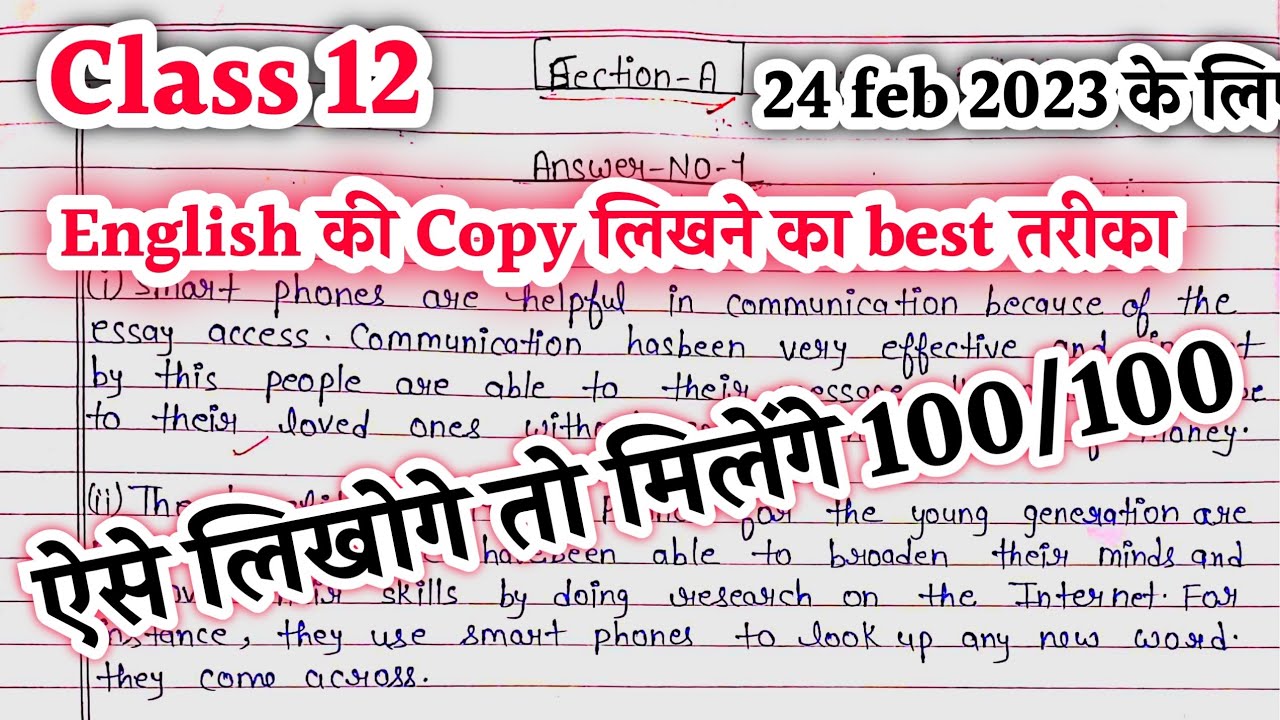 Class 12
Section-A
24 feb 2023 के
Answer-No-1
English की Copy लिखने का best तरीका
(i) Smart phones are helpful in communication because of the
essay access. Communication hasbeen very effective and
by this people are able to their
to their loved ones money.
ऐसे लिखोगे तो मिलेंगे 100/100
(ii) The for the young generation are
havebeen able to broaden their minds and
skills by doing research on the Internet. For
instance, they use smart phones to look up any new word.
they come across.